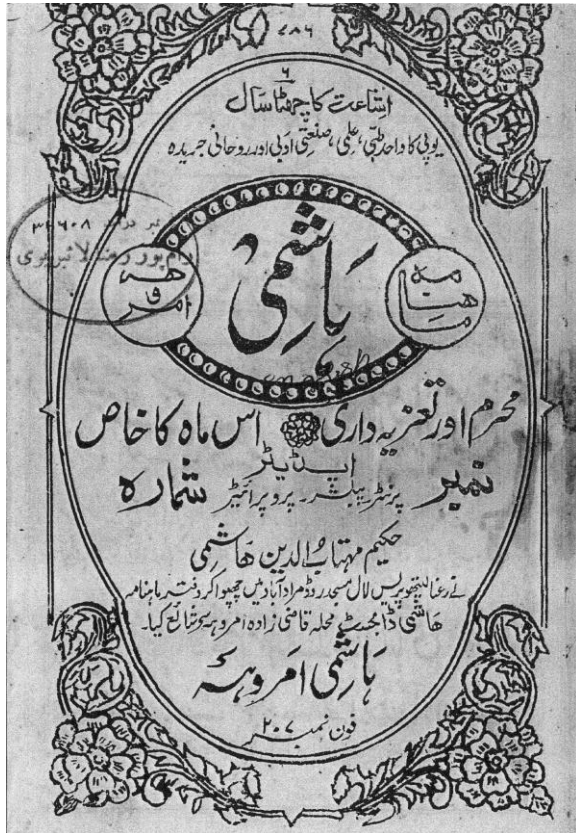 ۷۸۶
۶
اشاعت کا چھٹا سال
یوپی کا واحد طبّی، علمی، صنعتی ادبی اور روحانی جریدہ
نمبر ۳۲۶۰۸
رام پور رضا لائبریری
ماہنامہ
ہاشمی
امروہہ
محرم اور تعزیہ داری اس ماہ کا خاص
نمبر شمارہ
ایڈیٹر
پرنٹر پبلشر۔ پروپرائیٹر
حکیم مہتابُ الدین ھاشمِی
نے رعنا لیتھو پریس لال مسجد روڈ مرادآباد میں چھپوا کر دفتر ماہنامہ
ھاشمی ڈائجسٹ محلہ قاضی زادہ امروہہ سے شائع کیا۔
ہاشمی امروہہ
فون نمبر ۲۰۷